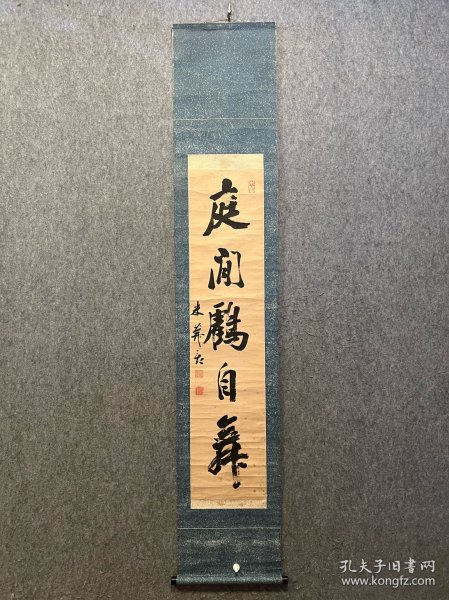 庭闲鶴自舞
米葊
孔夫子旧书网
www.kongfz.com